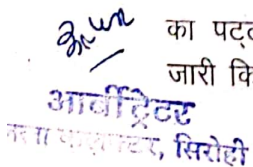 का पट्ट
जारी कि
आर्बीट्रेटर
सिरोही